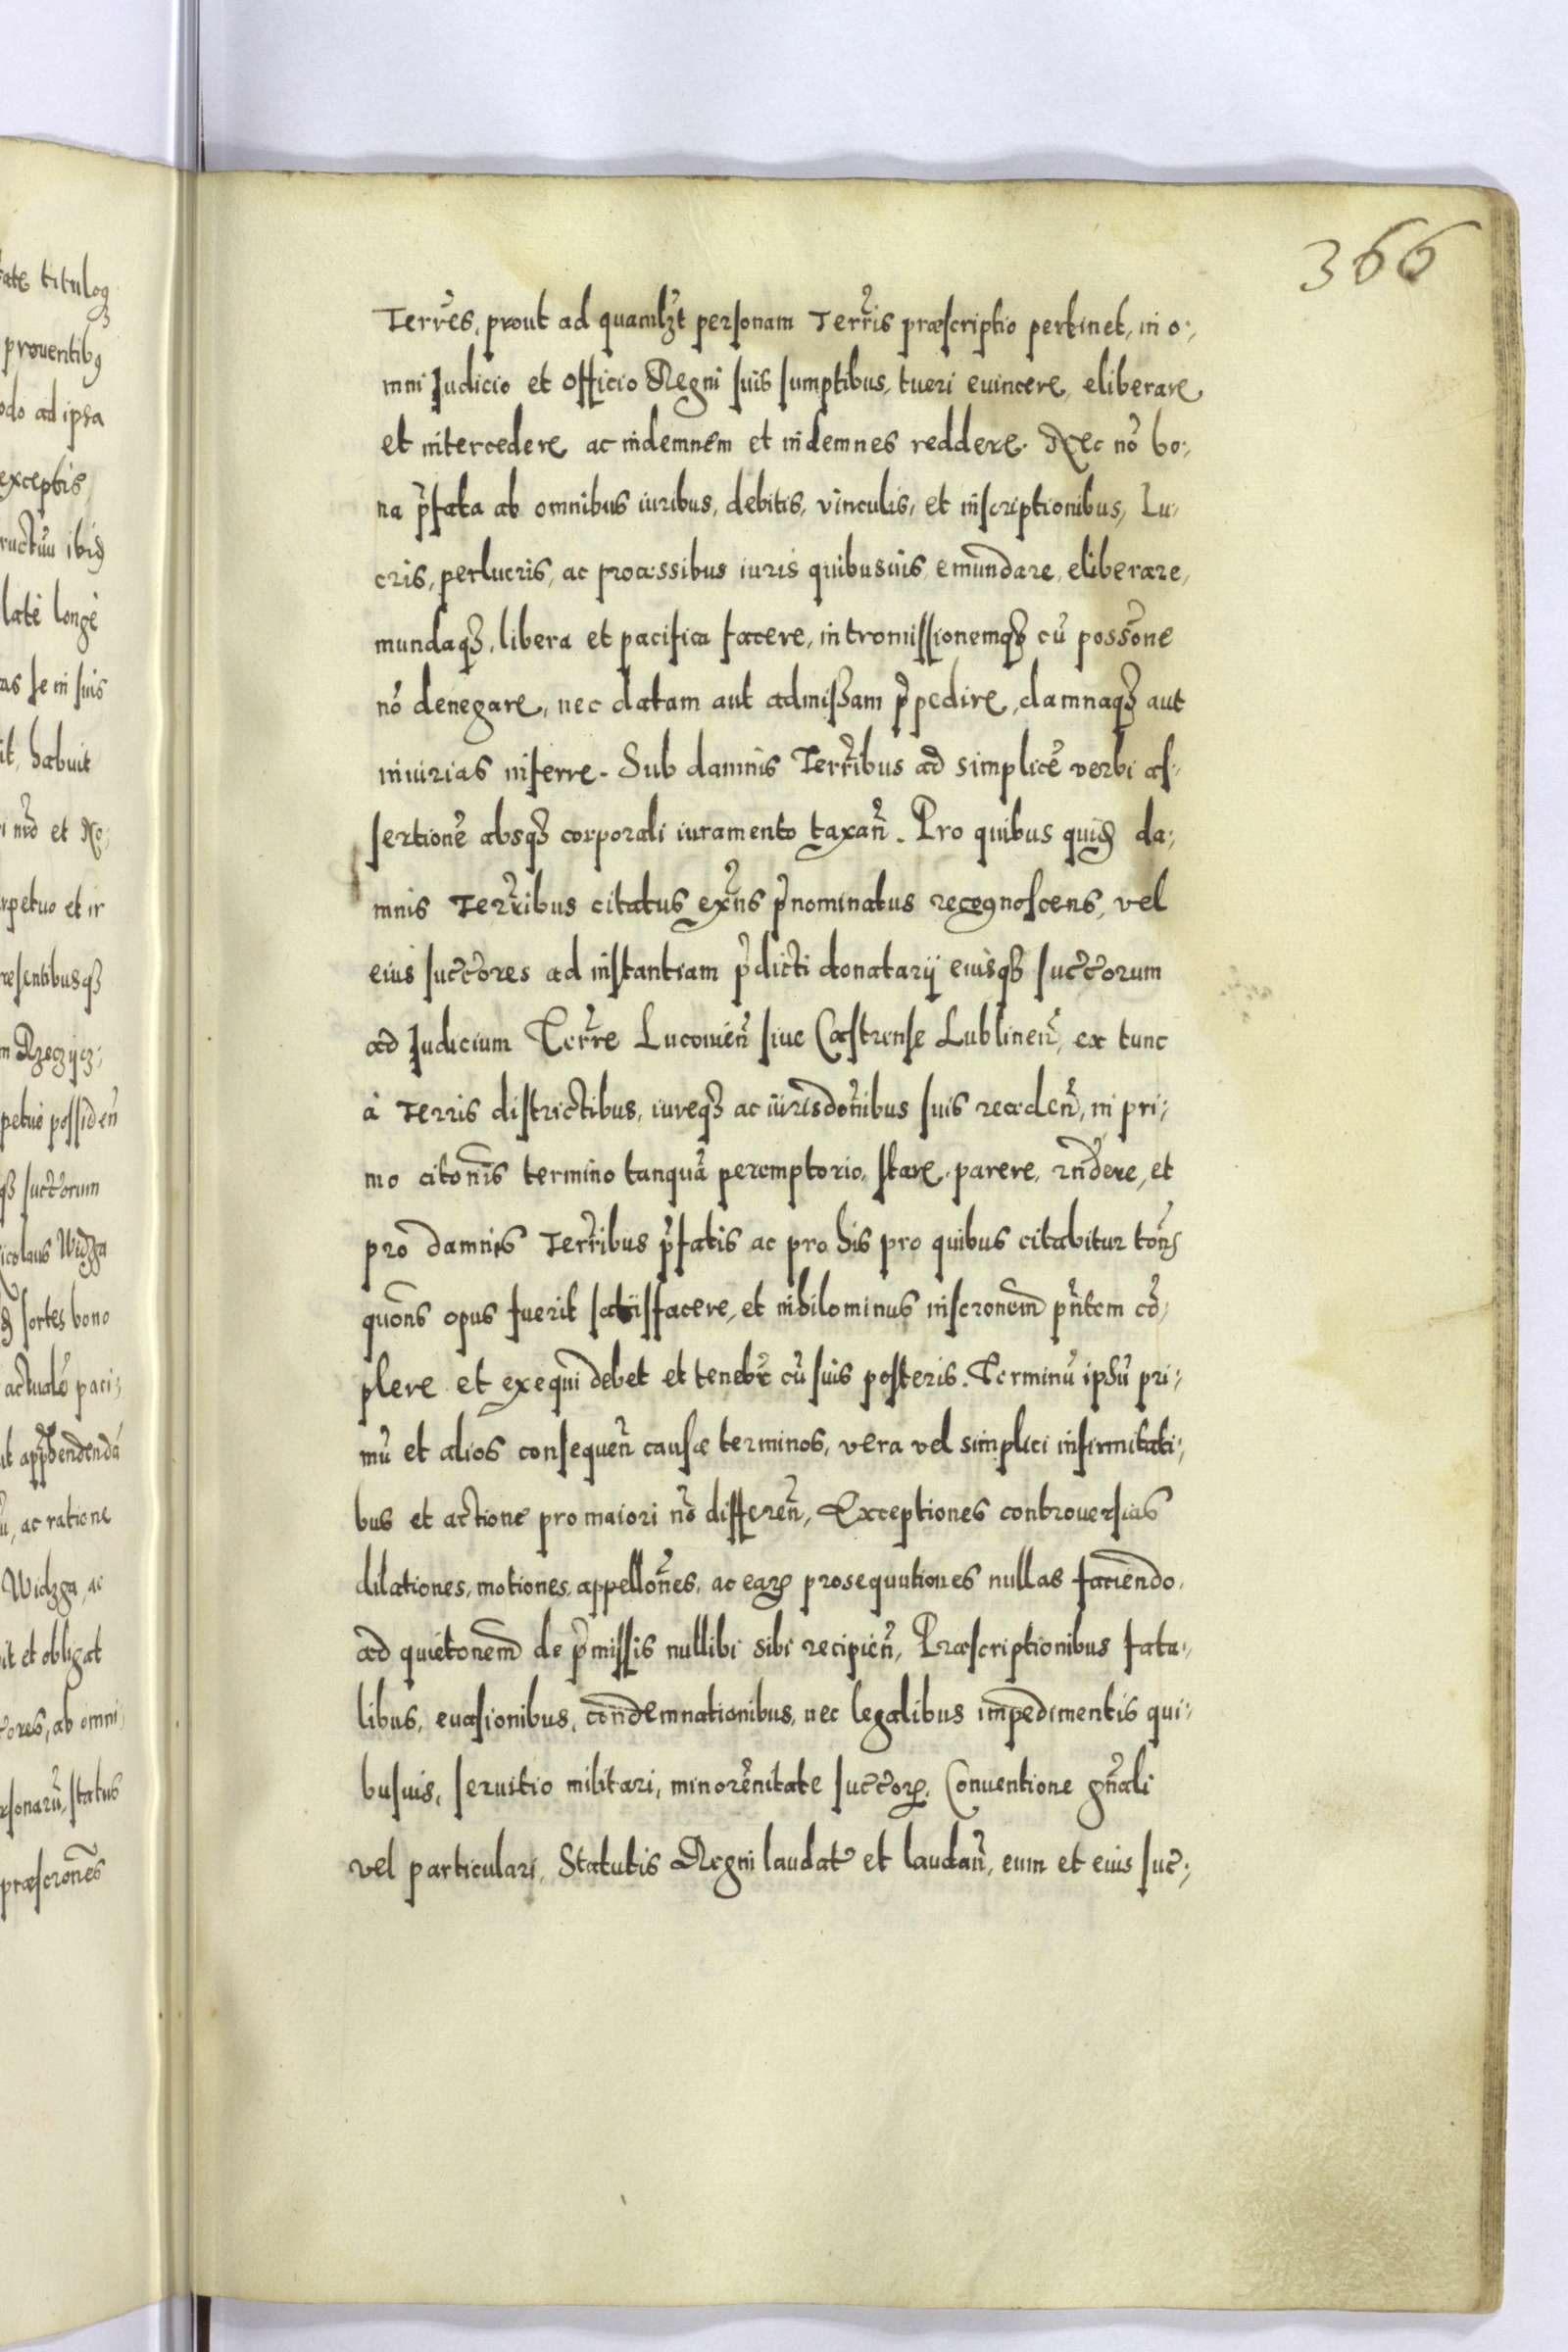 366
Terr̃es, prout ad quamlꝫt personam Terr̃is præscriptio pertinet, in o-
mni Iudicio et Officio Regni suis sumptibus, tueri euincere, eliberare
et intercedere ac indemnem et indemnes reddere. Nec nõ bo-
na p̃fata ab omnibus iuribus, debitis, vinculis, et inscriptionibus, Lu-
cris, perlucris, ac processibus iuris quibusuis emundare, eliberare,
mundaqꝫ, libera et pacifica facere, intromissionemqꝫ cũ possõne
nõ denegare, nec datam aut admißam p̃pedire, damnaqꝫ aut
iniurias inferre. Sub damnis Terr̃ibus ad simplicẽ verbi as-
sertionẽ absqꝫ corporali iuramento taxañ. Pro quibus quidꝫ da-
mnis Terr̃ibus citatus exñs p̃nominatus recognoscens, vel
eius succ̃ores ad instantiam p̃dicti donatarij eiusqꝫ succ̃orum
ad Iudicium Terr̃e Lucouieñ siue Castrense Lublineñ, ex tunc
à Terris districtibus, iureqꝫ ac iurisdoñibus suis recedeñ, in pri-
mo citõnis termino tanquã peremptorio, stare, parere, rñdere, et
pro damnis Terr̃ibus p̃fatis ac pro his pro quibus citabitur tõns
quõns opus fuerit satisfacere, et nihilominus inscrõnem pñtem cõ-
plere et exequi debet et tenebr̃ cũ suis posteris. Terminũ ipsũ pri-
mũ et alios consequeñ causæ terminos, vera vel simplici infirmitati-
bus et actione pro maiori nõ differeñ, Exceptiones controuersias
dilationes, motiones, appellõnes, ac earꝝ prosequutiones nullas faciendo,
ad quietõnem de p̃missis nullibi sibi recipieñ, Præscriptionibus fata-
libus, euasionibus, condemnationibus, nec legalibus impedimentis qui-
busuis, seruitio militari, minorẽnitate succ̃orꝝ, Conuentione gñali
vel particulari, Statutis Regni laudat̃ et laudañ, eum et eius suc-